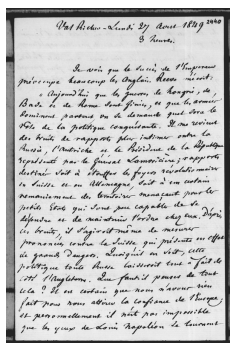 2440
Val Richer - Lundi 27 Août 1849
3 heures.
Je vois que le succès de l'Empereur
préoccupe beaucoup les Anglais. Reeve m'écrit:
« Aujourd'hui que les guerres de Hongrie, de
Bade et de Rome sont finies, et que les armées
dominent partout on se demande quel sera le
rôle de la politique conquérante. Il me revient
des bruits de rapports plus intimes entre la
Russie, l'Autriche et le Président de la République
représentée par le Général Lamoricière; rapports
destinés soit à étouffer les foyers révolutionnaires
en Suisse et en Allemagne, soit à un certain
remaniement de territoires menaçant pour les
petits états qui sont peu capables de se
défendre et de maintenir l'ordre chez eux. D'après
ces bruits, il s'agirait même de mesures
prononcées contre la Suisse qui présente en effet
de grands dangers. Quoiqu'il en soit, cette
politique toute Russe laisserait tout à fait de
côté l'Angleterre. Que faut-il penser de tout
cela? Il est certain que nous n'avons rien
fait pour nous attirer la confiance de l'Europe,
et personnellement il n'est pas impossible
que les yeux de Louis Napoléon se tournent